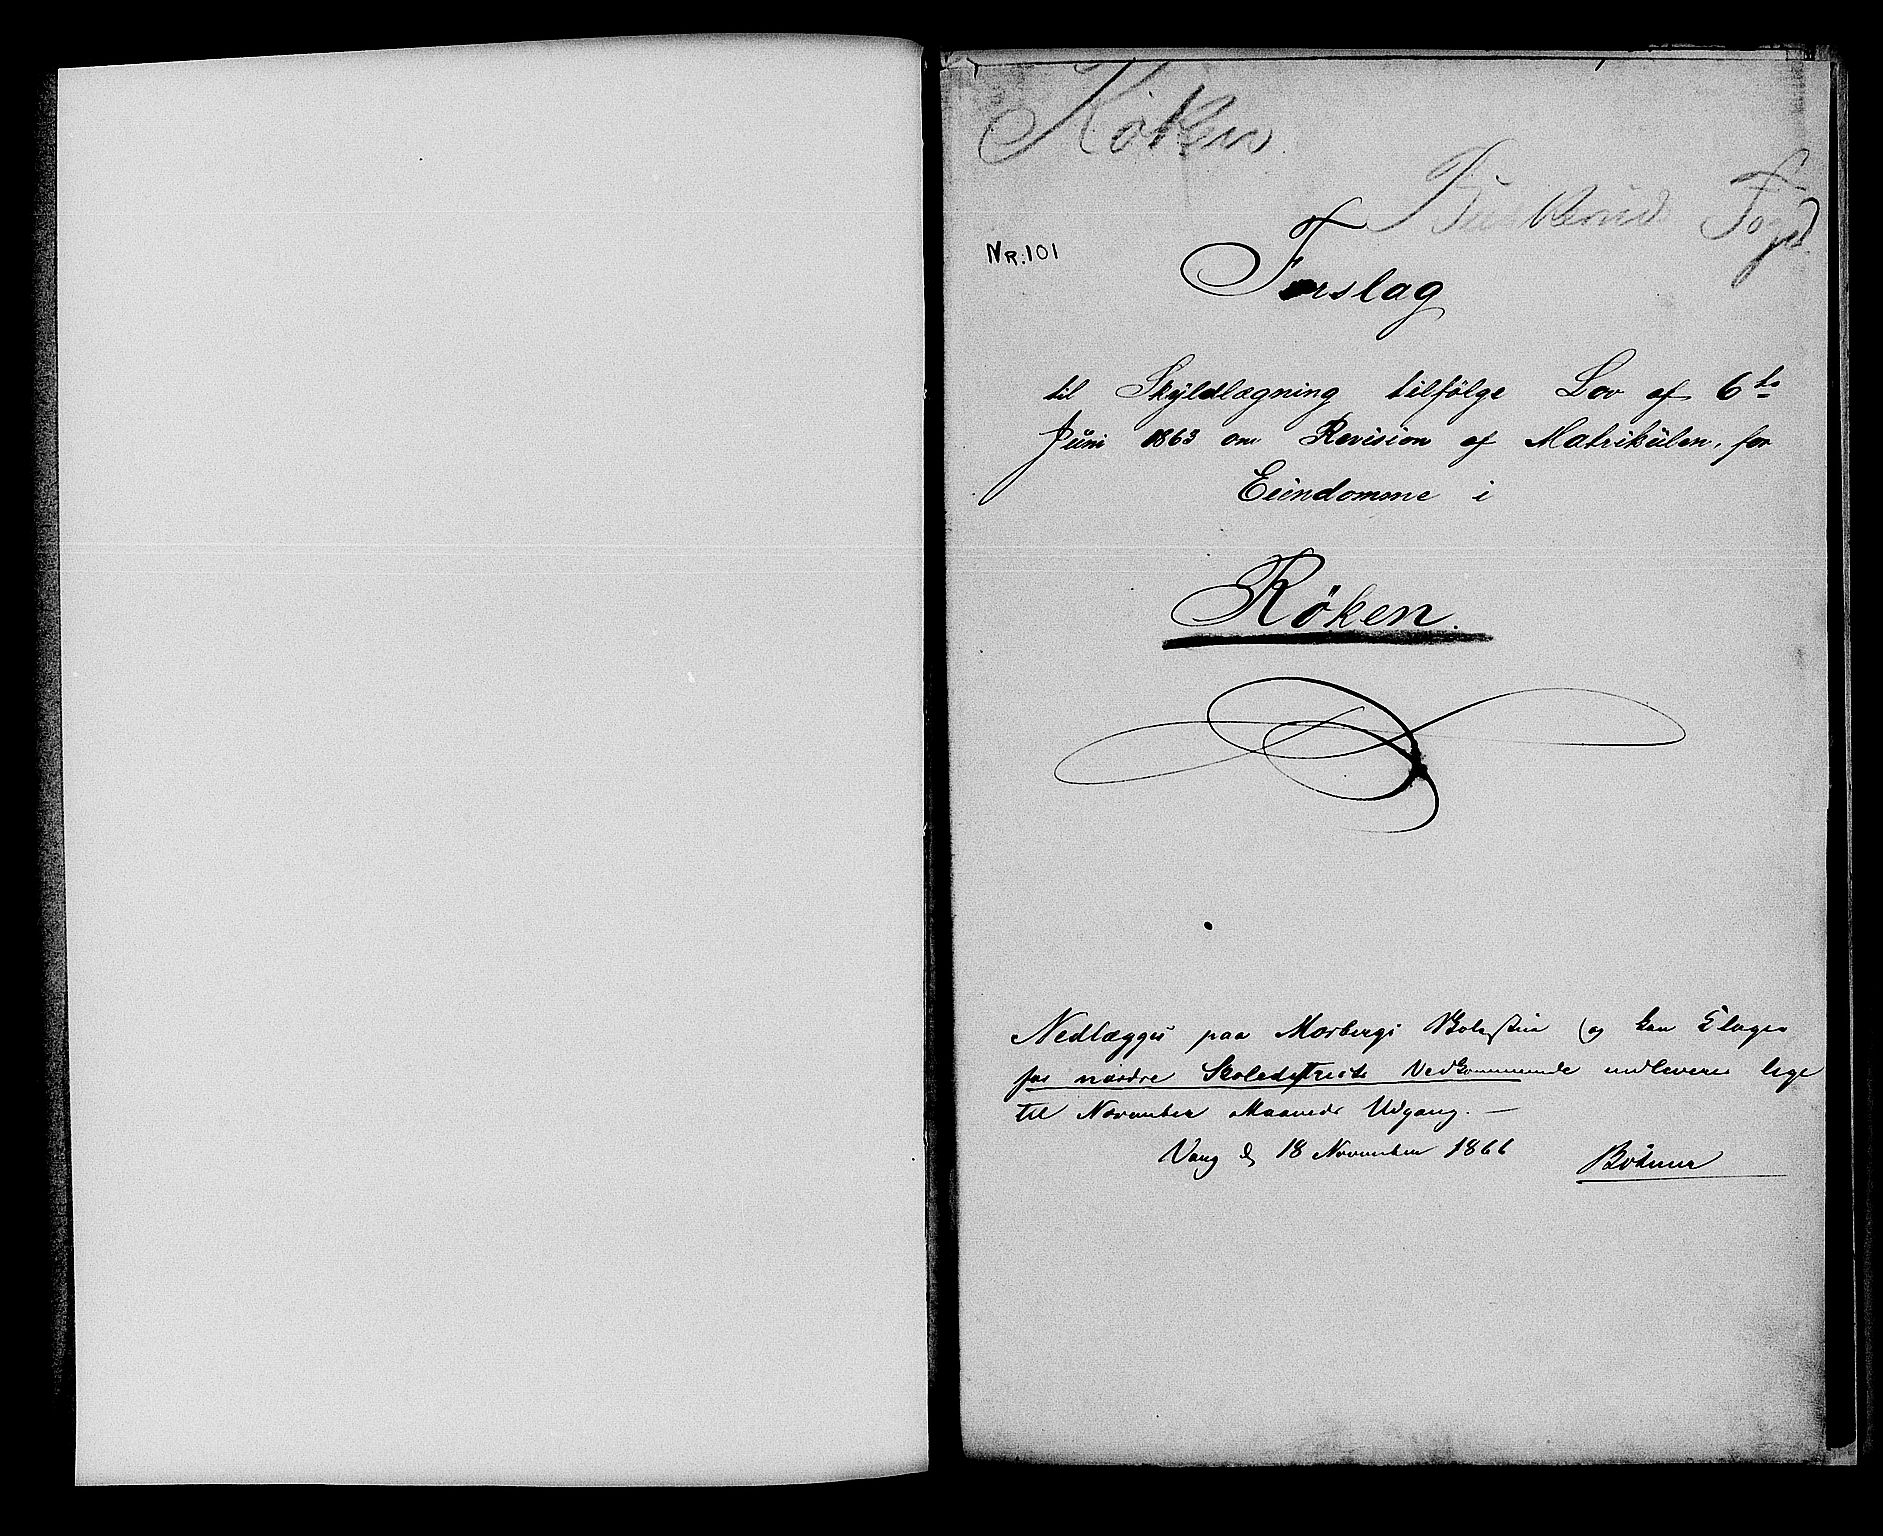 Røken
Buskerud Fogd
NR.101
Forslag
til Skyldlægning tilfølge Lov af 6te
Juni 1863 om Revision af Matrikulen, for
Eiendomme i
Røken.
Nedlægges paa Morbergs og kan Klager
for nordre Skoledistricts Vedkommende indleveres lige
til November Maaneds Udgang. —
Vang d 18 November 1866